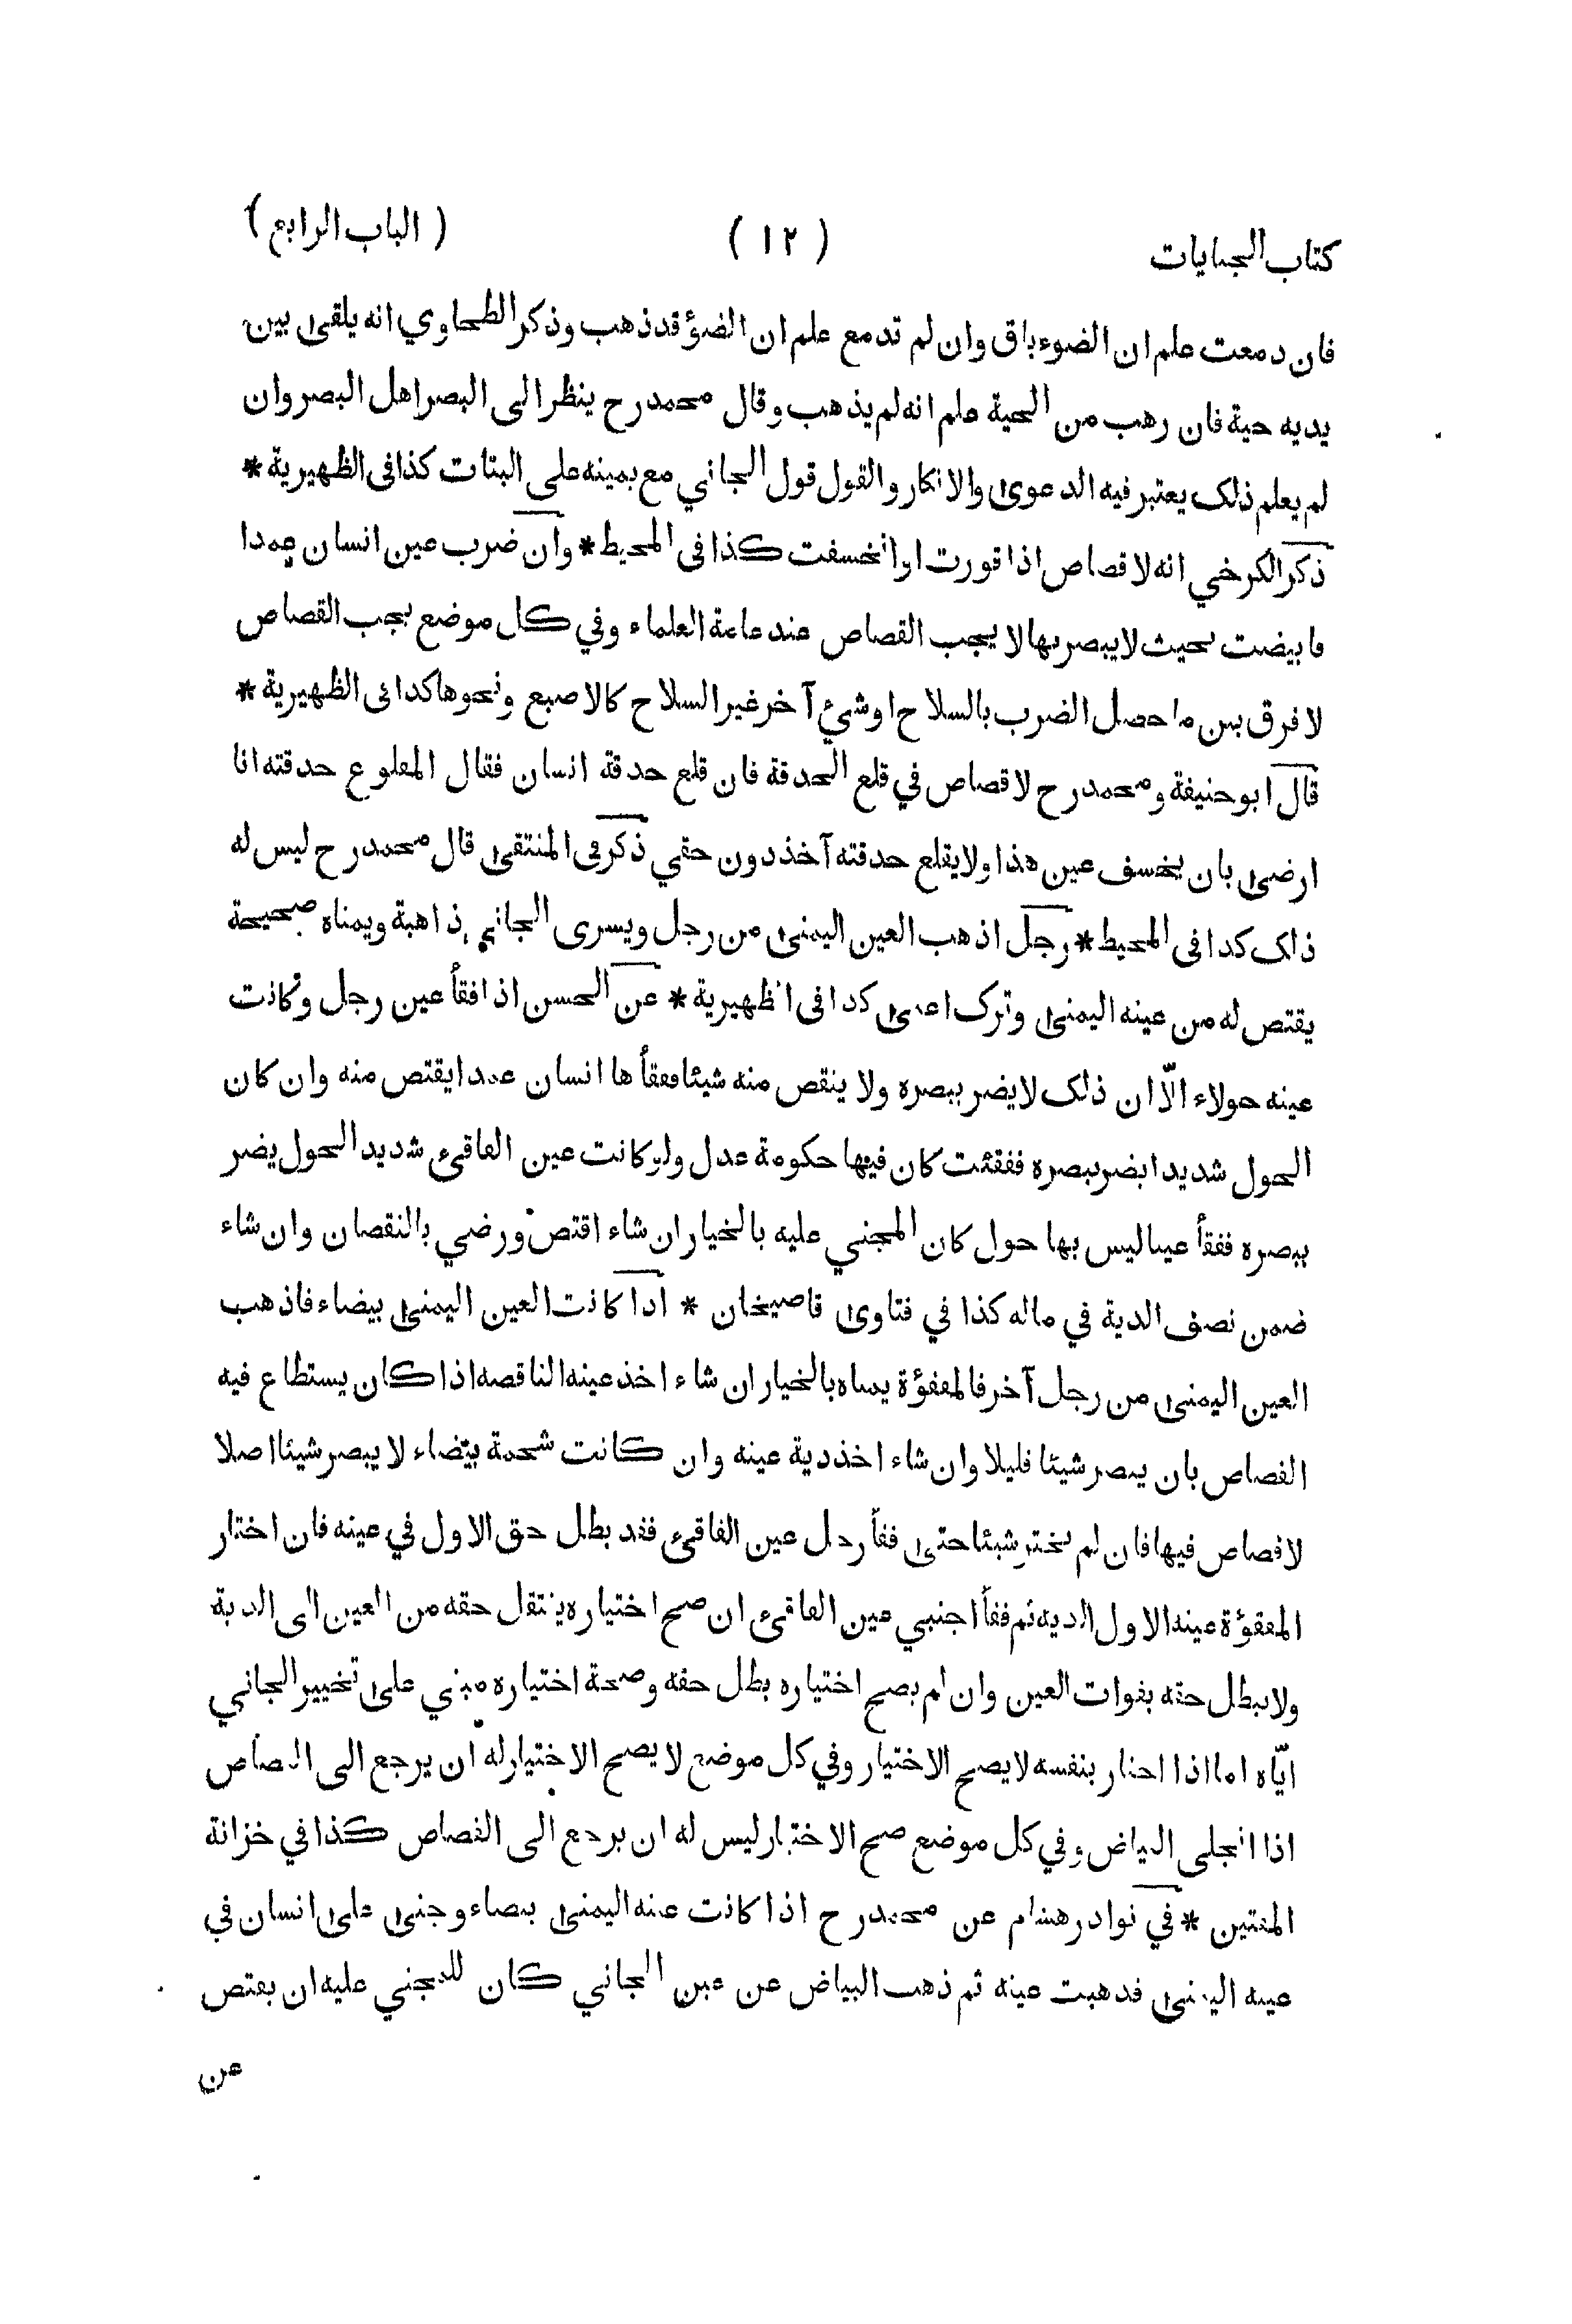 كتاب الجنايات
( ١٢ )
( الباب الرابع )
فان دمعت علم ان الضوء باق وان لم تدمع علم ان الضوؤ قد ذهب وذكر الطحاوي انه يلقى بين
يديه حية فان رهب من الحية علم انه لم يذهب وقال محمد رح ينظر الى البصر اهل البصر وان
لم يعلم ذلك يعتبر فيه الدعوى والانكار والقول قول الجاني مع يمينه على البتات كذا فى الظهيرية *
ذكر الكرخي انه لا قصاص اذا قورت او انخسفت كذا فى المحيط * وان ضرب عين انسان عمدا
فابيضت بحيث لا يبصر بها لا يجب القصاص عند عامة العلماء وفي كل موضع يجب القصاص
لا فرق بين ما حصل الضرب بالسلاح او شيء آخر غير السلاح كالاصبع ونحوها كذا فى الظهيرية *
قال ابو حنيفة ومحمد رح لا قصاص في قلع الحدقة فان قلع حدقة انسان فقال المقلوع حدقته انا
ارضى بان يخسف عين هذا ولا يقلع حدقته آخذ دون حقي ذكر فى المنتقى قال محمد رح ليس له
ذلك كذا فى المحيط * رجل اذهب العين اليمنى من رجل ويسرى الجاني ذاهبة ويمناه صحيحة
يقتص له من عينه اليمنى وترك اعمى كذا فى الظهيرية * عن الحسن اذا فقأ عين رجل وكانت
عينه حولاء الّا ان ذلك لا يضر ببصره ولا ينقص منه شيئا ففقأ ها انسان عمدا يقتص منه وان كان
الحول شديدا يضر ببصره ففقئت كان فيها حكومة عدل ولو كانت عين الفاقئ شديد الحول يضر
ببصره ففقأ عينا ليس بها حول كان المجني عليه بالخيار ان شاء اقتص ورضي بالنقصان وان شاء
ضمن نصف الدية في ماله كذا في فتاوى قاضيخان * اذا كانت العين اليمنى بيضاء فاذهب
العين اليمنى من رجل آخر فالمفقؤة يمناه بالخيار ان شاء اخذ عينه الناقصه اذا كان يستطاع فيه
القصاص بان يبصر شيئا قليلا وان شاء اخذ دية عينه وان كانت شحمة بيضاء لا يبصر شيئا اصلا
لا قصاص فيها فان لم يختر شيئا حتى فقأ رجل عين الفاقئ فقد بطل حق الاول في عينه فان اختار
المفقؤة عينه الاول الديه ثم فقأ اجنبي عين الفاقئ ان صح اختياره ينتقل حقه من العين الى الدية
ولا يبطل حقه بفوات العين وان لم يصح اختياره بطل حقه وصحة اختياره مبني على تخيير الجاني
ايّاه اما اذا اختار بنفسه لا يصح الاختيار وفي كل موضع لا يصح الاختيار له ان يرجع الى القصاص
اذا انجلى البياض وفي كل موضع صح الاختيار ليس له ان يرجع الى القصاص كذا في خزانة
المفتين * في نوادر هشام عن محمد رح اذا كانت عينه اليمنى بيضاء وجنى على انسان في
عينه اليمنى فذهبت عينه ثم ذهب البياض عن عين الجاني كان للمجني عليه ان يقتص
عن